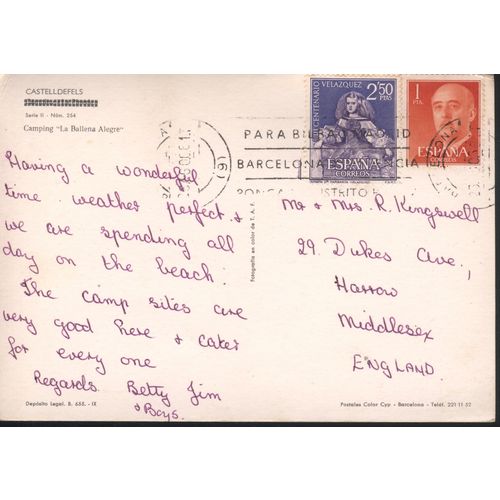 CASTELLDEFELS
Serie II - Núm. 254
Camping "La Ballena Alegre"
Having a wonderful
time weather perfect &
we are spending all
day on the beach.
The camp sites are
very good here & cater
for every one
Regards. Betty Jim
& Boys.
Depósito Legal. B. 655. - IX
Fotografía en color de T. A. F.
CENTENARIO VELAZQUEZ
2'50
PTAS
ESPAÑA
CORREOS
1
PTA.
ESPAÑA
CORREOS
PARA BILBAO MADRID
BARCELONA VALENCIA
PONGA DISTRITO
Mr & Mrs. R. Kingswell
29. Dukes Ave.,
Harrow
Middlesex
ENGLAND.
Postales Color Cyp - Barcelona - Teléf. 221 11 57